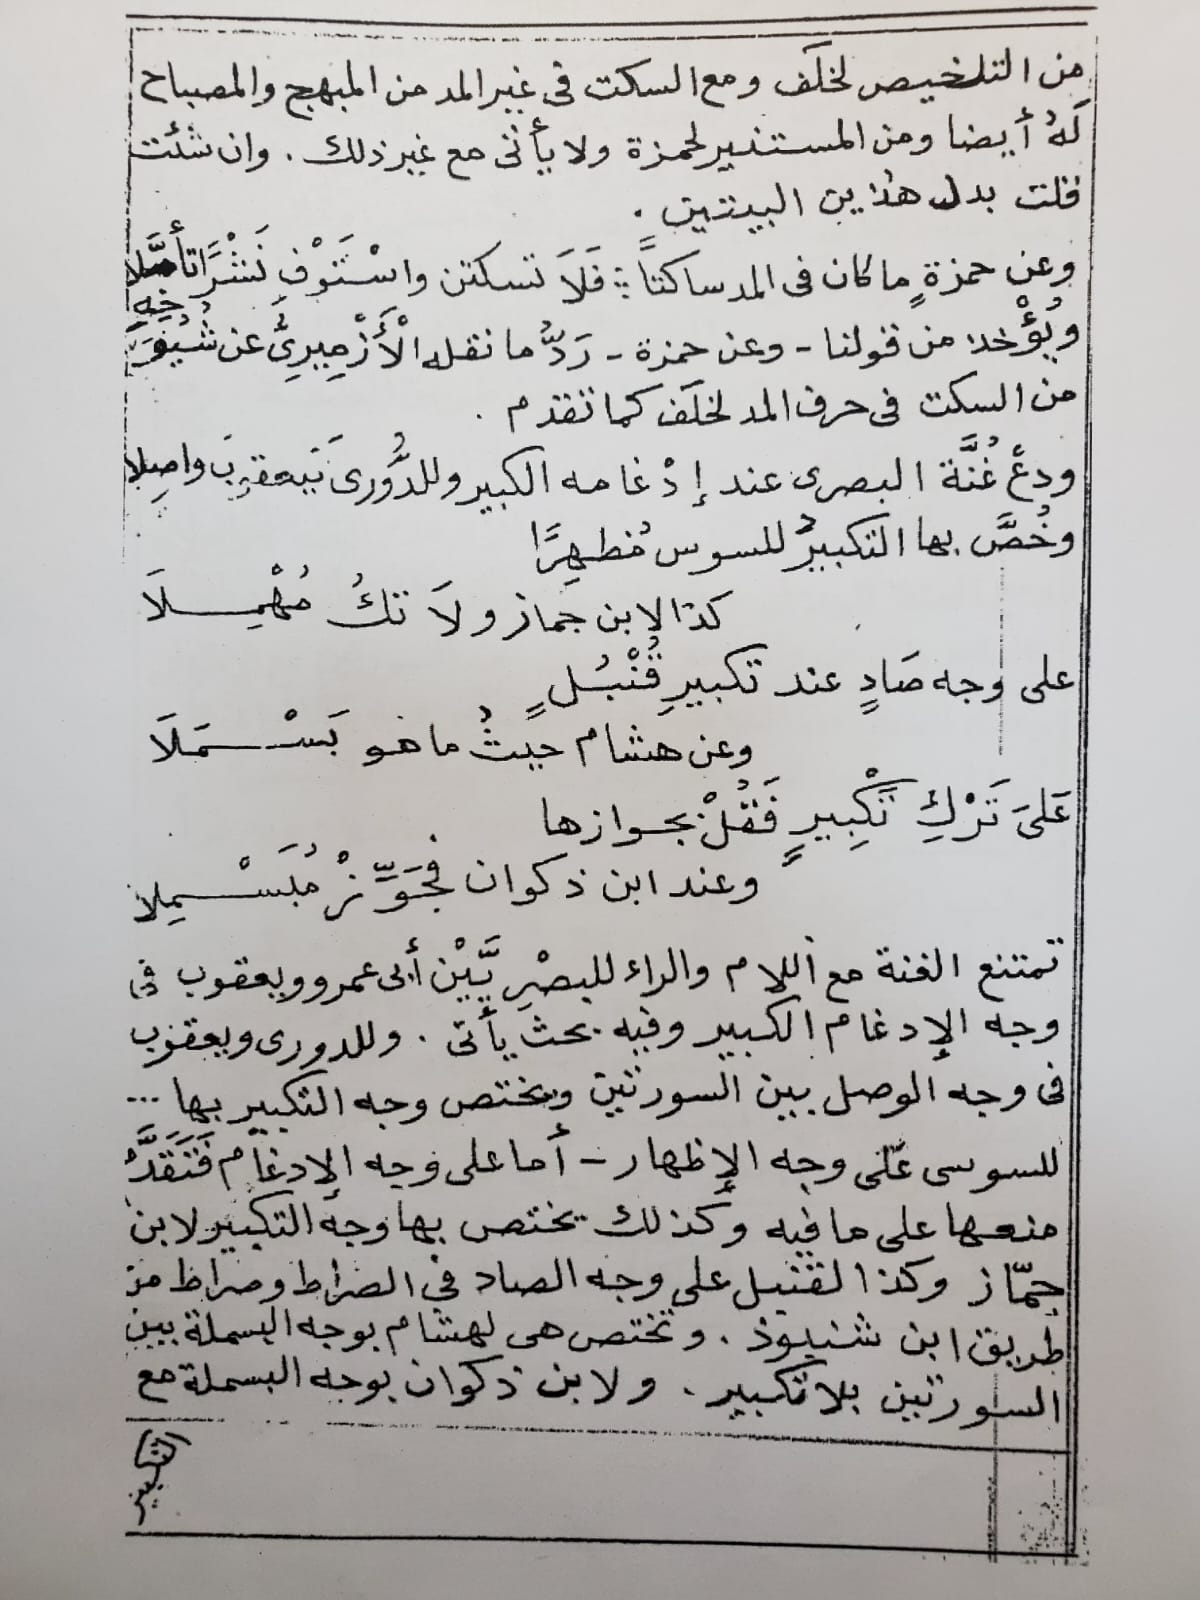 من التلخيص لخلَف ومع السكت فى غير المد من المبهج والمصباح
لَهُ أيضا ومن المستنير لحمزة ولا يأتى مع غير ذلك . وان شئت
قلت بدل هذين البيتين .
وعن حمزةٍ ما كان فى المد ساكتاً ؛ فَلَا تسكتن واسْتَوْفِ نَشْرًا تأصَّلا
ويُؤْخذ من قولنا - وعن حمزة - رَدُّ ما نقله الْأَزْمِيرِىُّ عن شُيُوخِهِ
من السكت فى حرف المد لخلَف كما تقدم .
ودعْ غُنَّة البصرى عند إدْغامه الكبير وللدُّورى يَعقوبَ واصِلا
وخُصَّ بها التكبيرُ للسوس مُظهِرًا
كذا لابن جماز ولَا تكُ مُهْمِلَا
على وجه صَادٍ عند تكبيرِ قُنْبُلٍ
وعن هشام حيثُ ما هو بَسْمَلَا
عَلَىَ تَرْكِ تَكْبِيرٍ فَقُلْ بجوازها
وعند ابن ذكوان فجَوِّزْ مُبَسْمِلا
تمتنع الغنة مع اللام والراء للبصْرِيَّيْن أبى عمرو ويعقوب فى
وجه الإدغام الكبير وفيه بحث يأتى . وللدورى ويعقوب
فى وجه الوصل بين السورتين ويختص وجه التكبير بها ...
للسوسى على وجه الإظهار - أما على وجه الإدغام فَتَقَدَّمُ
منعها على ما فيه وكذلك يختص بها وجه التكبير لابن
جمّاز وكذا لقنبل على وجه الصاد فى الصراط وصراط من
طريق ابن شنبوذ . وتختص هى لهشام بوجه البسملة بين
السورتين بلا تكبير . ولابن ذكوان بوجه البسملة مع